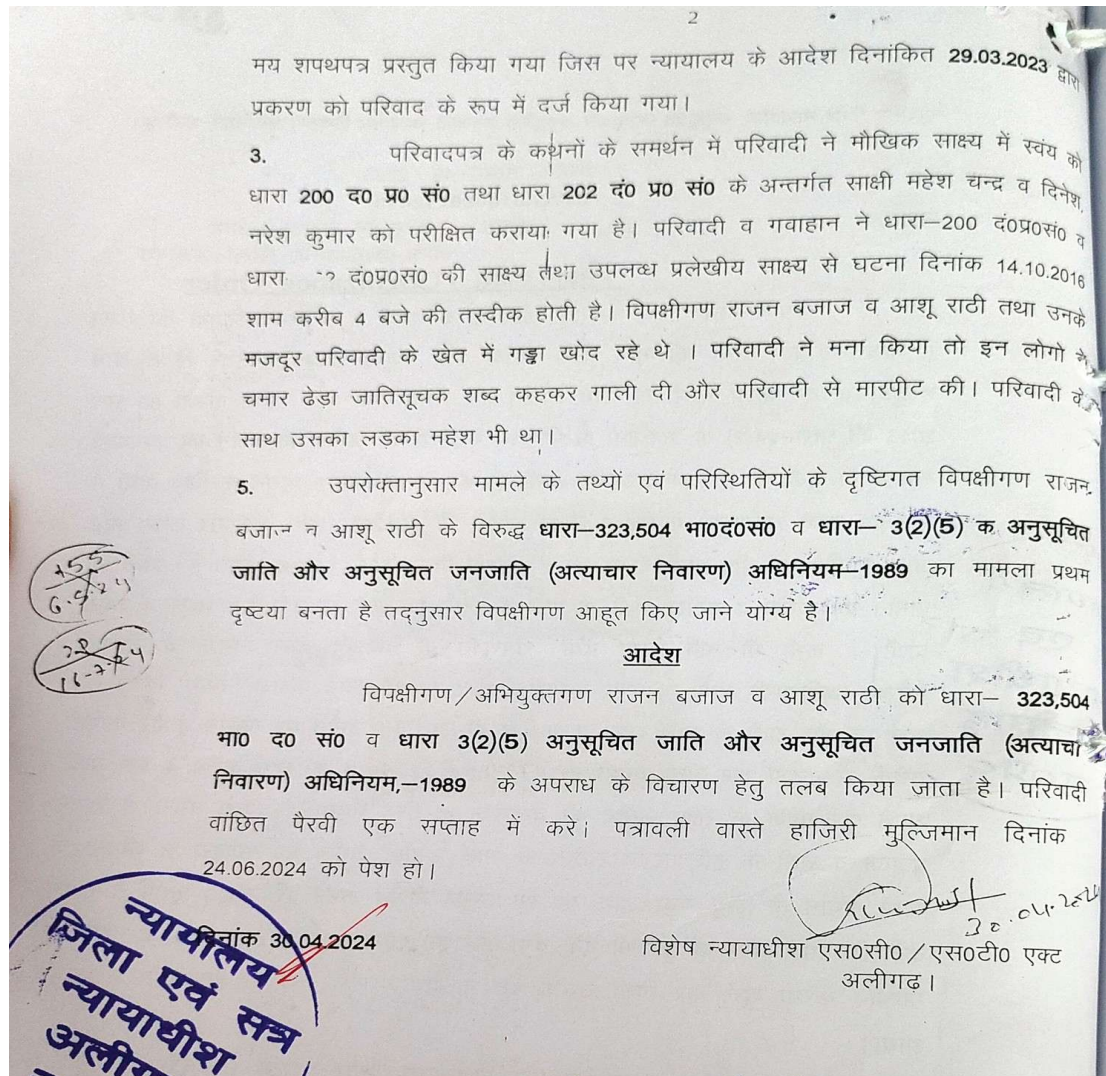 2
मय शपथपत्र प्रस्तुत किया गया जिस पर न्यायालय के आदेश दिनांकित 29.03.2023 द्वारा
प्रकरण को परिवाद के रूप में दर्ज किया गया।
3. परिवादपत्र के कथनों के समर्थन में परिवादी ने मौखिक साक्ष्य में स्वंय को
धारा 200 द0 प्र0 सं0 तथा धारा 202 दं0 प्र0 सं0 के अन्तर्गत साक्षी महेश चन्द्र व दिनेश,
नरेश कुमार को परीक्षित कराया गया है। परिवादी व गवाहान ने धारा–200 दं0प्र0सं0 व
धारा दं0प्र0सं0 की साक्ष्य तथा उपलब्ध प्रलेखीय साक्ष्य से घटना दिनांक 14.10.2016
शाम करीब 4 बजे की तस्दीक होती है। विपक्षीगण राजन बजाज व आशू राठी तथा उनके
मजदूर परिवादी के खेत में गड्ढा खोद रहे थे । परिवादी ने मना किया तो इन लोगो ने
चमार ढेड़ा जातिसूचक शब्द कहकर गाली दी और परिवादी से मारपीट की। परिवादी के
साथ उसका लड़का महेश भी था।
5. उपरोक्तानुसार मामले के तथ्यों एवं परिस्थितियों के दृष्टिगत विपक्षीगण राजन
बजाज व आशू राठी के विरुद्ध धारा–323,504 भा0दं0सं0 व धारा– 3(2)(5) क अनुसूचित
जाति और अनुसूचित जनजाति (अत्याचार निवारण) अधिनियम–1989 का मामला प्रथम
दृष्टया बनता है तद्नुसार विपक्षीगण आहूत किए जाने योग्य है।
आदेश
विपक्षीगण/अभियुक्तगण राजन बजाज व आशू राठी को धारा– 323,504
भा0 द0 सं0 व धारा 3(2)(5) अनुसूचित जाति और अनुसूचित जनजाति (अत्याचा
निवारण) अधिनियम,–1989 के अपराध के विचारण हेतु तलब किया जाता है। परिवादी
वांछित पैरवी एक सप्ताह में करे। पत्रावली वास्ते हाजिरी मुल्जिमान दिनांक
24.06.2024 को पेश हो।
30.04.2024
दिनांक 30.04.2024
विशेष न्यायाधीश एस0सी0/एस0टी0 एक्ट
अलीगढ़।
न्यायालय
जिला एवं सत्र
न्यायाधीश